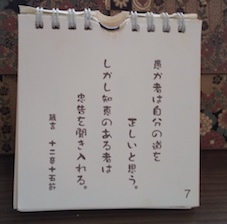 愚か者は自分の道を
正しいと思う。
しかし知恵のある者は
忠告を聞き入れる。
箴言 十二章十五節
7